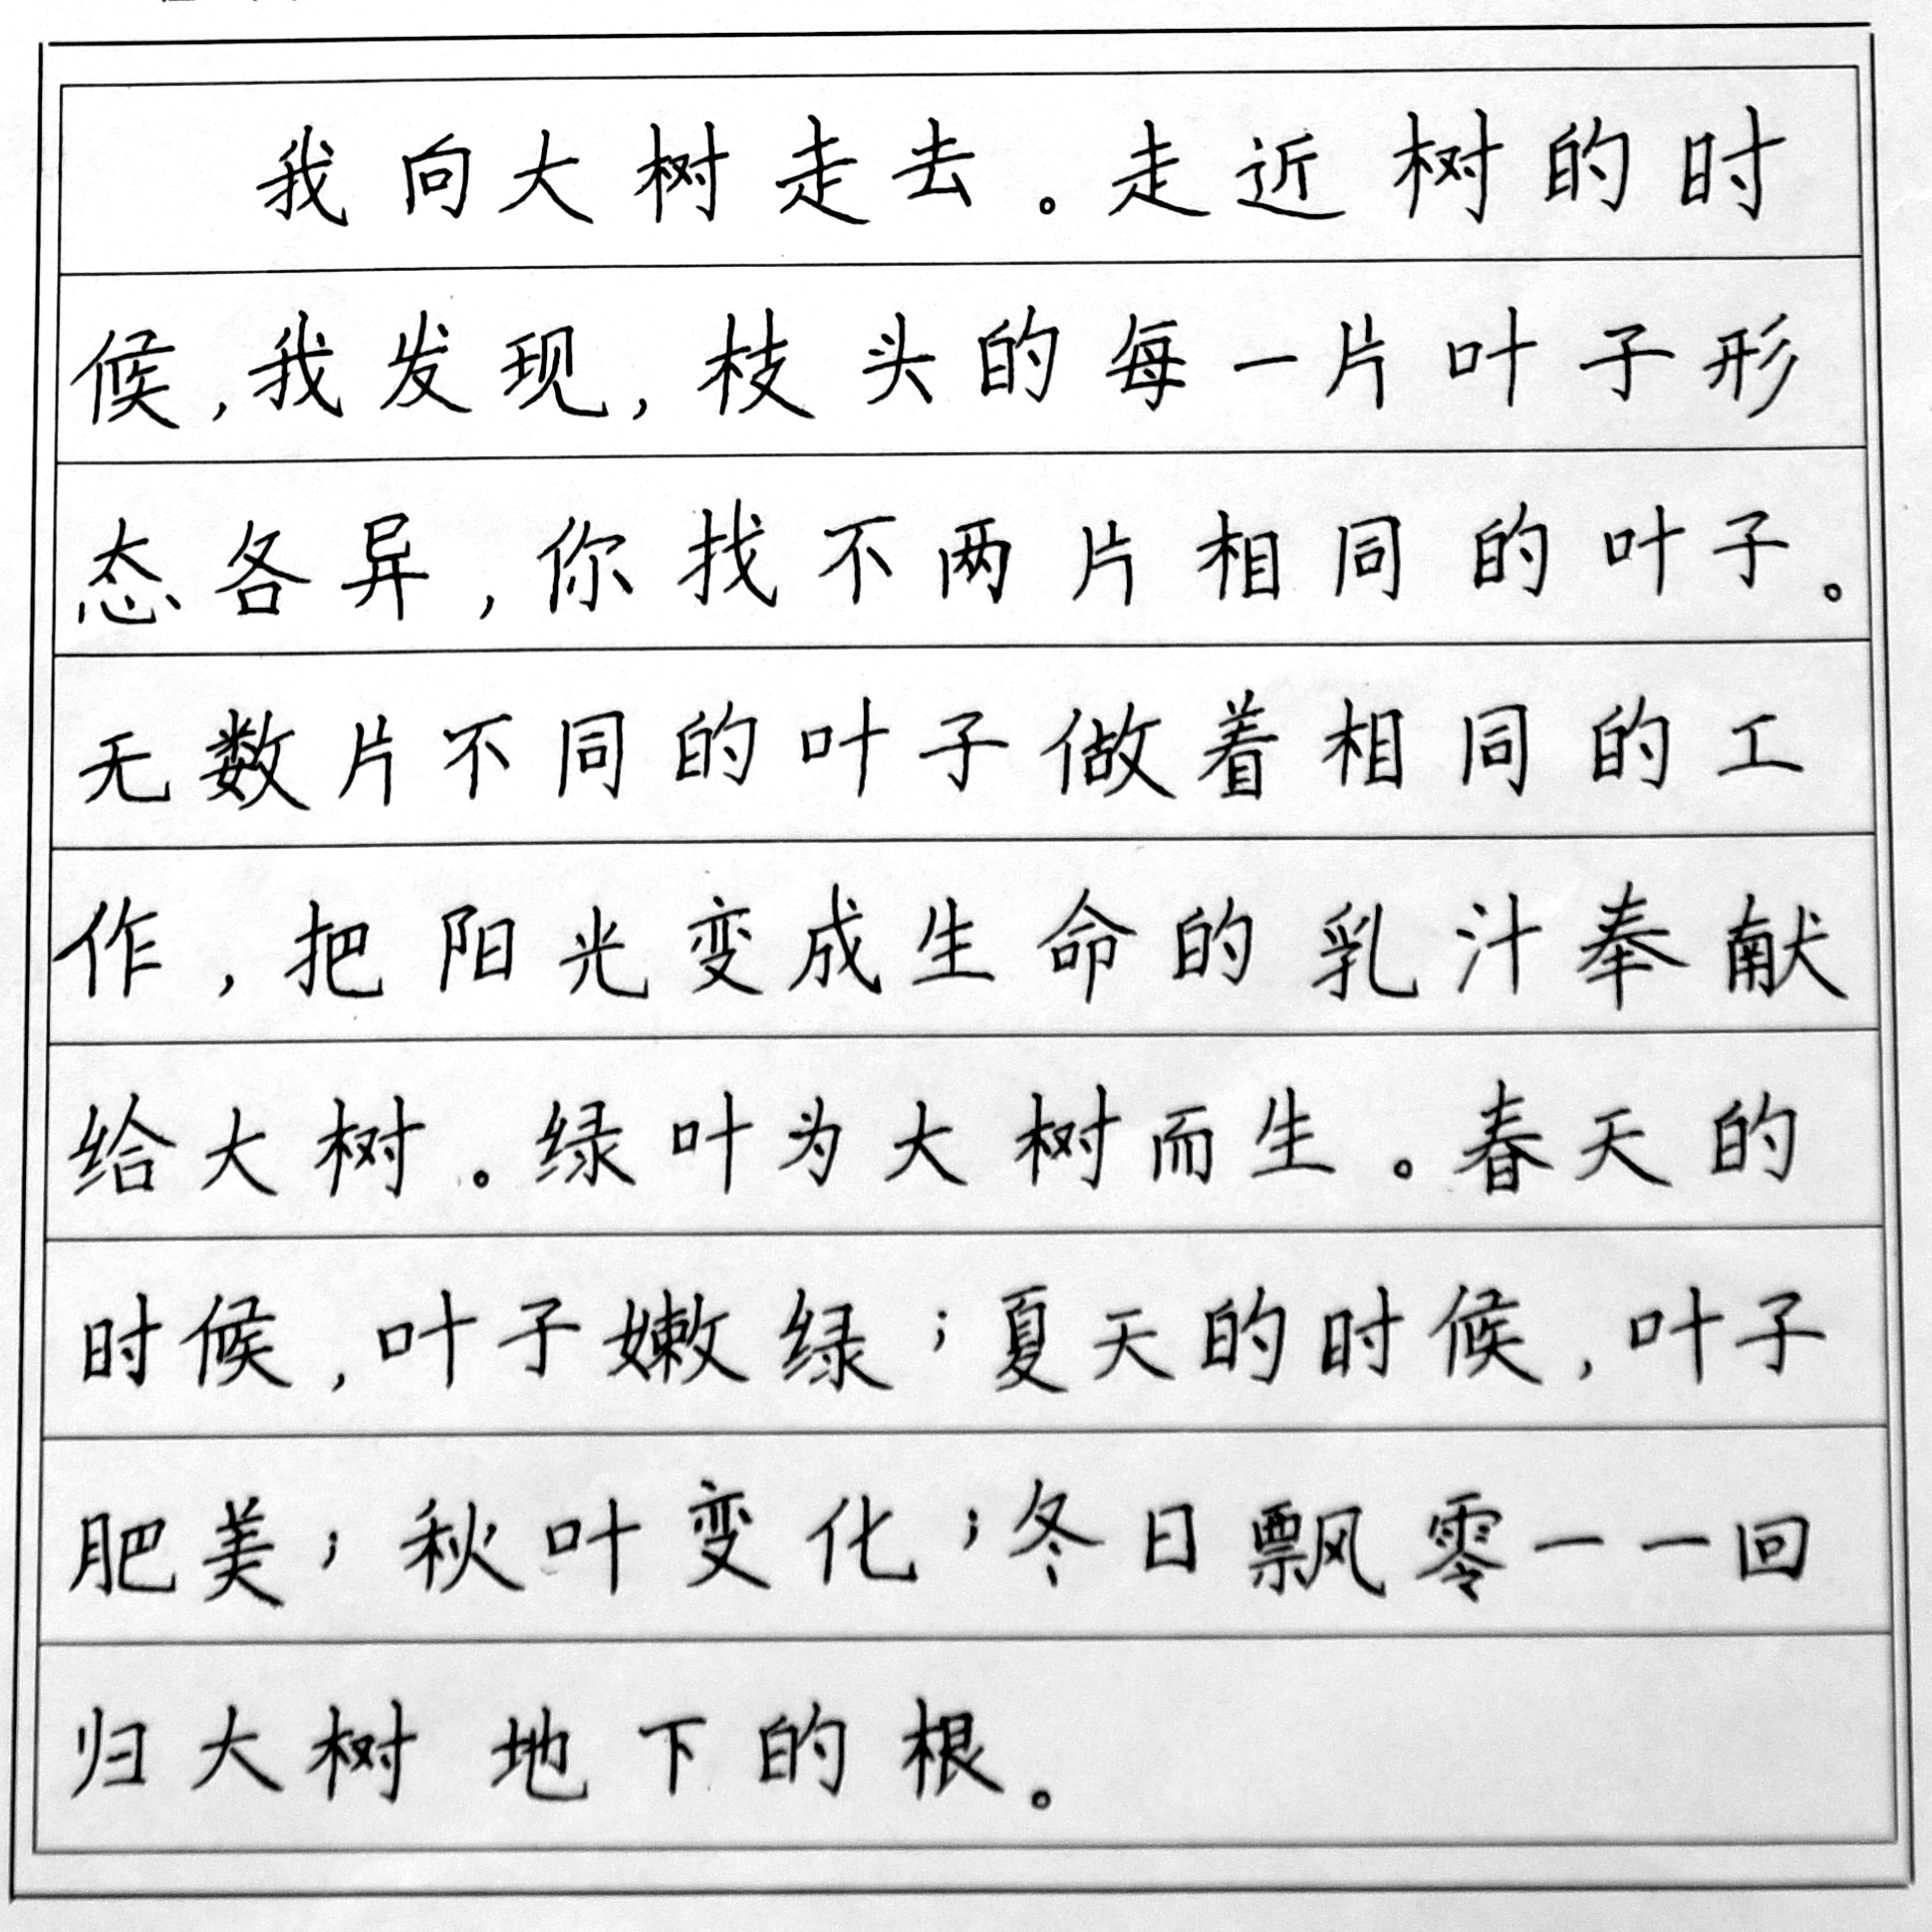 我向大树走去。走近树的时
候,我发现,枝头的每一片叶子形
态各异,你找不两片相同的叶子。
无数片不同的叶子做着相同的工
作,把阳光变成生命的乳汁奉献
给大树。绿叶为大树而生。春天的
时候,叶子嫩绿;夏天的时候,叶子
肥美;秋叶变化;冬日飘零一一回
归大树地下的根。